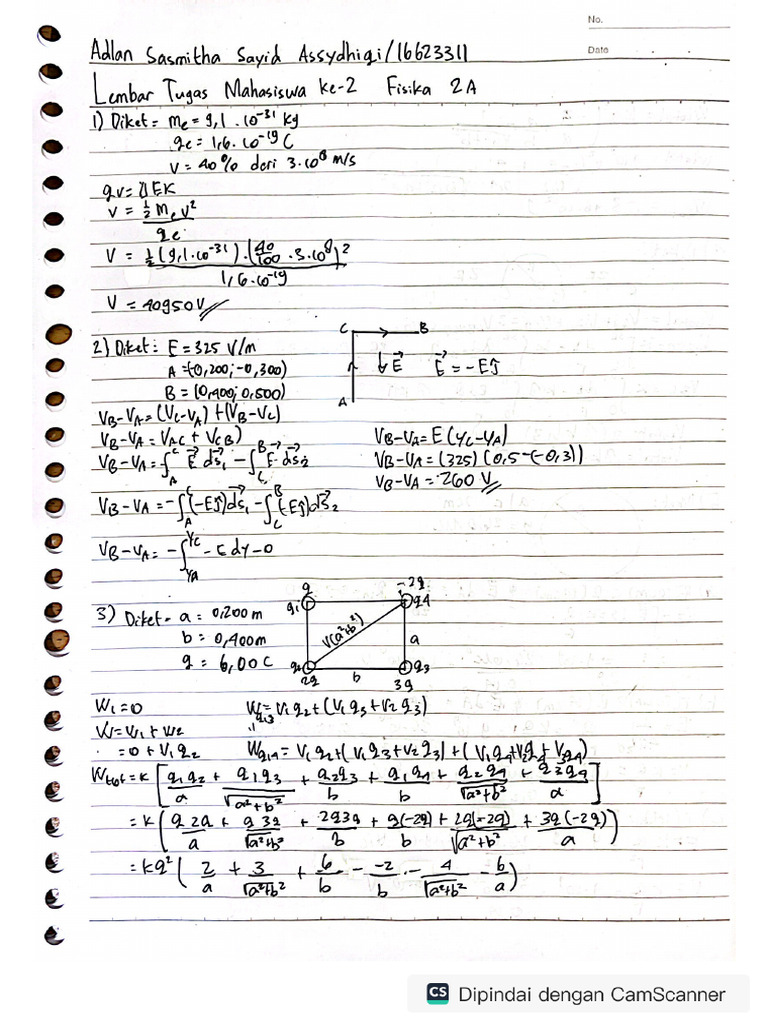 No.
Date
Adlan Sasmitha Sayid Assydhiqi/16623311
Lembar Tugas Mahasiswa ke-2 Fisika 2A
1) Diket = me = 9,1 . 10^-31 kg
qe = 1,6. 10^-19 C
V = 40% dari 3.10^8 m/s
qv = ΔEK
V = ½ Me v² / qe
V = ½ (9,1.10^-31).(40/100 .3.10^8)² / 1,6.10^-19
V = 40950 V
C B
2) Diket: E = 325 V/m
↓E⃗ E⃗ = -Eĵ
A = (-0,200; -0,300)
B = (0,400; 0,500)
A
VB-VA = (VC-VA) + (VB-VC)
VB-VA = VAC + VCB)
VB-VA = ∫_A^C E⃗ ds⃗₁ - ∫_C^B E⃗ ds⃗₂
VB-VA = -∫_A^C (-Eĵ) ds⃗₁ - ∫_C^B (-Eĵ) ds⃗₂
VB-VA = -∫_YA^YC -E dy - 0
VB-VA = E (yC-yA)
VB-VA = (325) (0,5-(-0,3))
VB-VA = 260 V
3) Diket = a = 0,200 m
b = 0,400 m
q = 6,00 C
q -2q
q1 q4
√(a²+b²) a
q2 q3
2q b 3q
W1 = 0
W = W1 + W2
= 0 + V1 q2
Wq13 = V1 q2 + (V1 q3 + V2 q3)
Wq14 = V1 q2 + (V1 q3 + V2 q3) + (V1 q4 + V2q4 + V3q4)
Wtot = k [q1q2/a + q1q3/√a²+b² + q2q3/b + q1q4/b + q2q4/√a²+b² + q3q4/a]
= k (q 2q/a + q 3q/√a²+b² + 2q3q/b + q(-2q)/b + 2q(-2q)/√a²+b² + 3q(-2q)/a)
= kq² (2/a + 3/√a²+b² + 6/b - -2/b - 4/√a²+b² - 6/a)
CS Dipindai dengan CamScanner